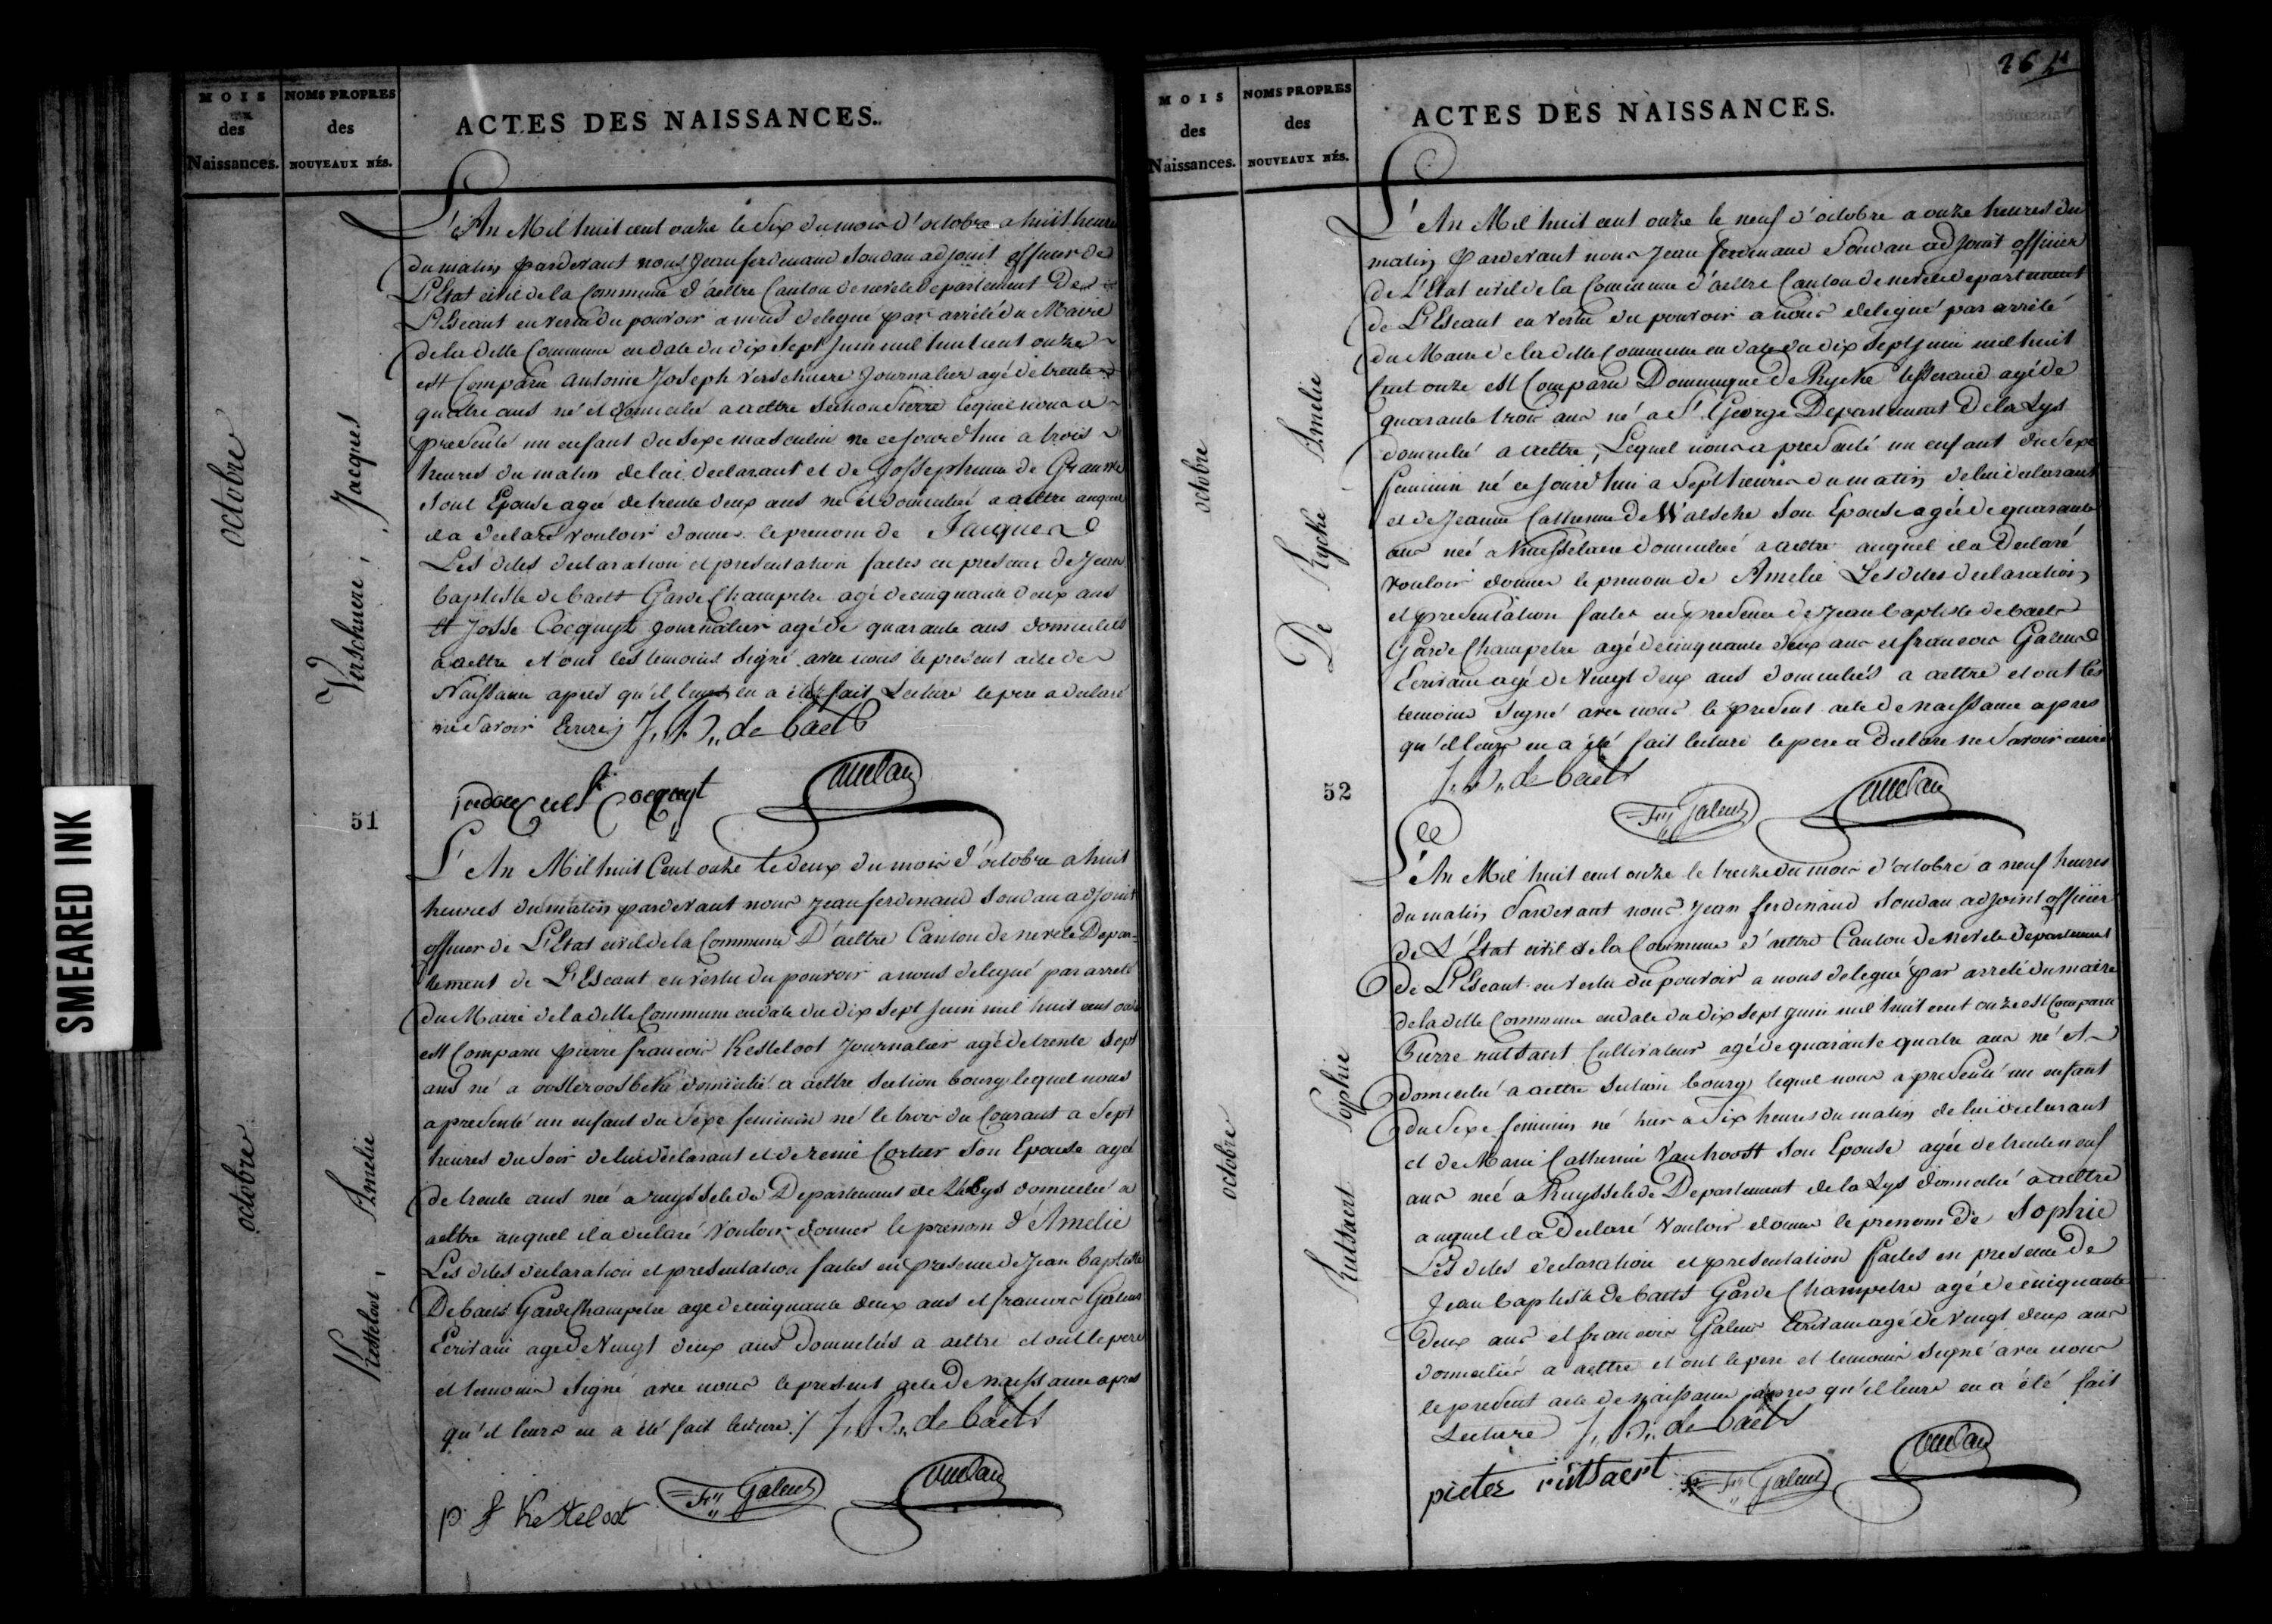 SMEARED INK
MOIS des Naissances.
NOMS PROPRES des NOUVEAUX NÉS.
ACTES DES NAISSANCES.
octobre
Verschuere, Jacques
L'An Mil huit cent onze le Six du mois d'octobre a huit heures
du matin pardevant nous Jean ferdinand Soudan adjoint officier de
L'Etat civil de la Commune d'aeltre Canton de nevele Departement De
L'Escaut en vertu du pouvoir a nous delegué par arrêlé du Maire
de la ditte Commune en date du dix Sept Juin mil huit cent onze
est Comparu antoine Joseph Verschuere Journalier agé de trente
quatre ans né et domicilié a aeltre Section lequel nous a
presenté un enfant du Sexe masculin né ce Jourd'hui a trois
heures du matin de lui declarant et de Josephinne de Grauwe
Sont Epouse agée de trente deux ans né et domicilié a aeltre auquel
il a declaré vouloir donner le prenom de Jacques
Les dites declaration et presentation faites en presence de Jean
baptiste de baets Garde Champetre agé de cinquante deux ans
et Josse Cocquyt Journalier agé de quarante ans domiciliés
a aeltre et ont les temoins Signé avec nous le present acte de
Naissance apres qu'il leurs en a été fait Lecture le pere a declaré
ne Savoir Ecrire J. B. de baets
Cocquyt Soudan
51
octobre
Kesteloot, Amelie
L'An Mil huit Cent onze le deux du mois d'octobre a huit
heures du matin pardevant nous Jean ferdinand Soudan adjoint
officier de L'Etat civil de la Commune D'aeltre Canton de nevele Depar-
tement de L'Escaut en vertu du pouvoir a nous delegué par arreté
du Maire de la ditte Commune en date du dix Sept Juin mil huit cent onze
est Comparu pierre francois Kesteloot Journalier agé de trente Sept
ans né a oosteroosbeke domicilié a aeltre Section bourg lequel nous
a presenté un enfant du Sexe feminin né le trois du Courant a Sept
heures du Soir de lui declarant et de renie Cortier Son Epouse agée
de trente ans née a ruysselede Departement de la Lys domicilié a
aeltre auquel il a declaré Vouloir donner le prenom d'Amelie
Les dites declaration et presentation faites en presence de Jean baptiste
De baets Garde Champetre agé de cinquante deux ans et francois Galens
Ecrivain agé de Vingt deux ans Domiciliés a aeltre et ont le pere
et temoins Signé avec nous le present acte de Naissance apres
qu'il leurs en a été fait lecture ./ J. B. de baets
p f Kesteloot Fr Galens Soudan
26
MOIS des Naissances.
NOMS PROPRES des NOUVEAUX NÉS.
ACTES DES NAISSANCES.
octobre
De Rycke Amelie
L'An Mil huit cent onze le neuf d'octobre a onze heures du
matin Pardevant nous Jean ferdinand Soudan adjoint officier
de L'Etat civil de la Commune d'aeltre Canton de nevele departement
de L'Escaut en vertu du pouvoir a nous delegué par arrêté
du Maire de la ditte Commune en date du dix Sept Juin mil huit
Cent onze est Comparu Dominique De Rycke tisserand agé de
quarante trois ans né a St George Departement De la Lys
domicilié a aeltre, Lequel nous a presenté un enfant du Sexe
feminin né ce Jourd'hui a Sept heures du matin de lui declarant
et de Jeanne Catherine de Walsche Son Epouse agée de quarante
ans née a domicilié a aeltre auquel il a Declaré
vouloir donner le prenom de Amelie Les dites declaration
et presentation faites en presence de Jean baptiste de baets
Garde Champetre agé de cinquante deux ans et francois Galens
Ecrivain agé de Vingt deux ans domiciliés a aeltre et ont les
temoins Signé avec nous le present acte de naissance apres
qu'il leurs en a été fait lecture le pere a Declare ne Savoir ecrire
J. B. de baets
Fr Galens Soudan
52
octobre
Rutsaert Sophie
L'An Mil huit cent onze le treize du mois d'octobre a neuf heures
du matin Pardevant nous Jean ferdinand Soudan adjoint officier
de L'Etat civil de la Commune d'aeltre Canton de nevele departement
de L'Escaut en vertu du pouvoir a nous delegué par arreté du maire
de la ditte Commune en date du dix Sept Juin mil huit cent onze est Comparu
Pierre rutsaert Cultivateur agé de quarante quatre ans né et
domicilié a aeltre Section bourg lequel nous a presenté un enfant
du Sexe feminin né hier a Six heures du matin de lui declarant
et de Marie Catherine Van hoost Son Epouse agée de trente neuf
ans née a Ruysselede Departement de la Lys domicilié a aeltre
auquel il a Declaré Vouloir donner le prenom de Sophie
Les dites declaration et presentation faites en presence de
Jean baptiste de baets Garde Champetre agé de cinquante
deux ans et francois Galens Ecrivain agé de Vingt deux ans
domiciliés a aeltre et ont le pere et temoins Signé avec nous
le present acte de naissance apres qu'il leurs en a été fait
Lecture J. B. de baets
pieter rutsaert Fr Galens Soudan